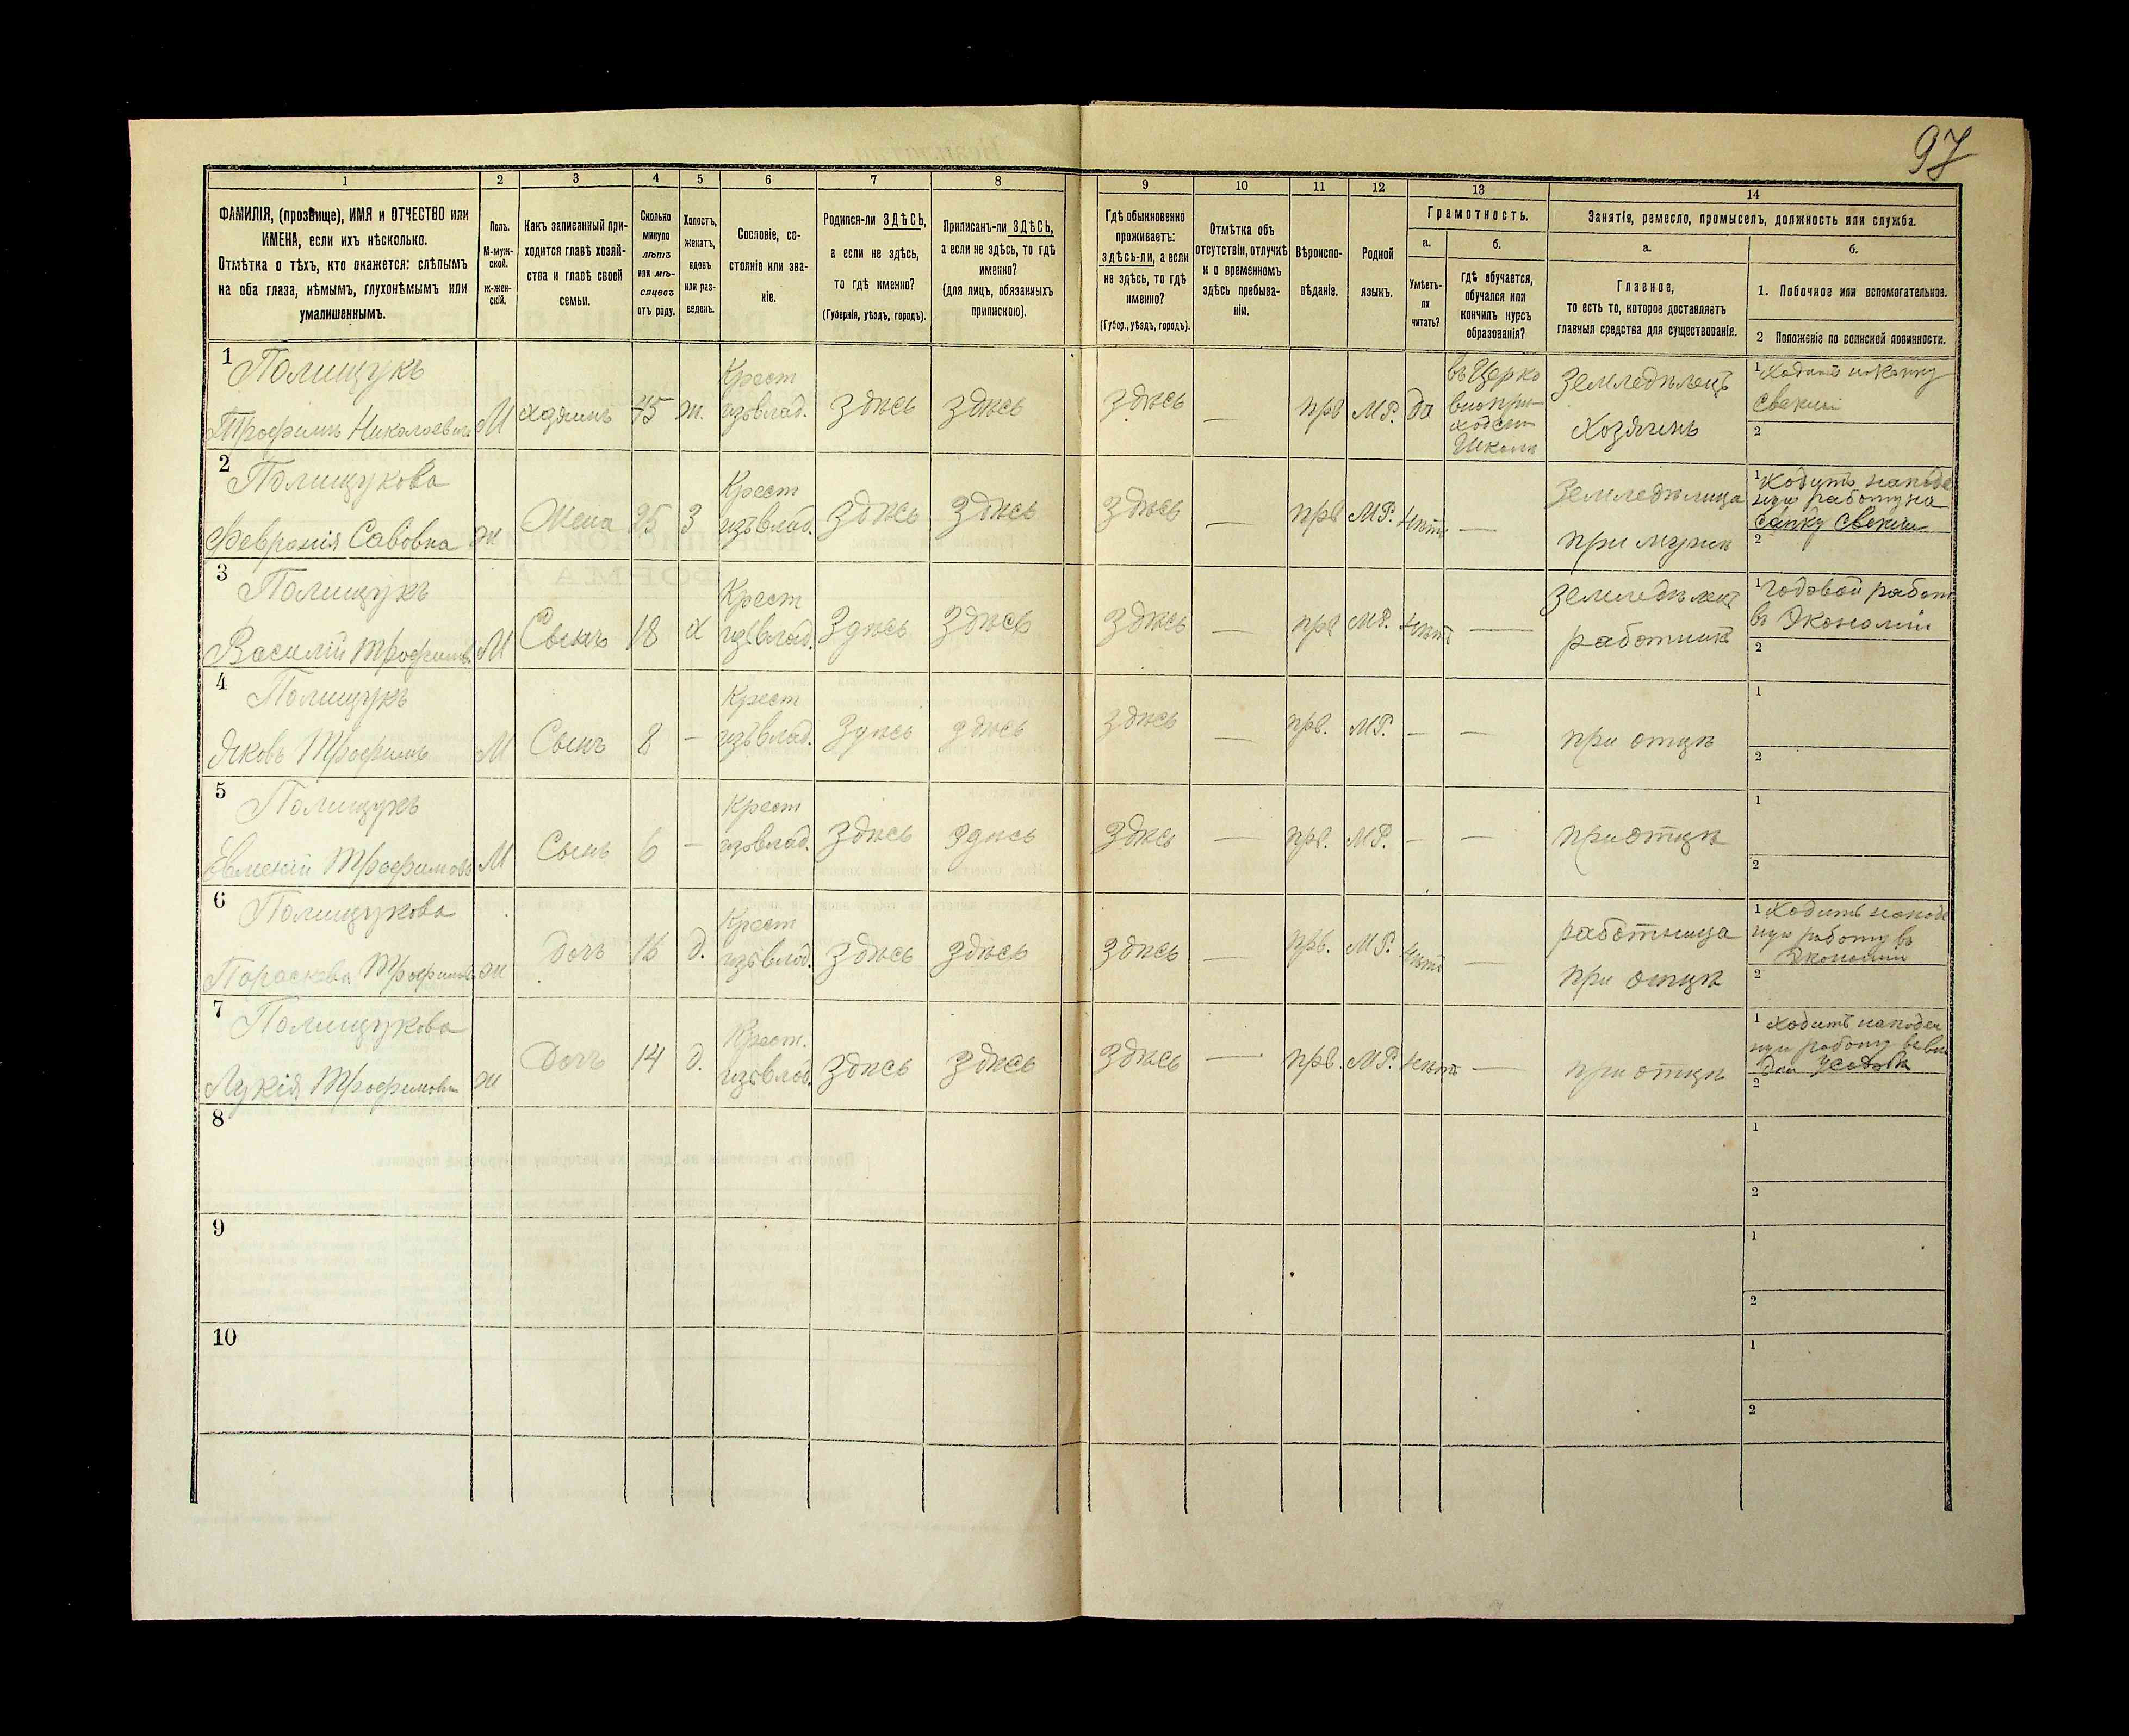 97
1 2 3 4 5 6 7 8 9 10 11 12 13 14
ФАМИЛІЯ, (прозвище), ИМЯ и ОТЧЕСТВО или
ИМЕНА, если ихъ нѣсколько.
Отмѣтка о тѣхъ, кто окажется: слѣпымъ
на оба глаза, нѣмымъ, глухонѣмымъ или
умалишеннымъ.
Полъ.
М-муж-
ской.
Ж-жен-
скій.
Какъ записанный при-
ходится главѣ хозяй-
ства и главѣ своей
семьи.
Сколько
минуло
лѣтъ
или мѣ-
сяцевъ
отъ роду.
Холостъ,
женатъ,
вдовъ
или раз-
веденъ.
Сословіе, со-
стояніе или зва-
ніе.
Родился-ли ЗДѢСЬ,
а если не здѣсь,
то гдѣ именно?
(Губернія, уѣздъ, городъ).
Приписанъ-ли ЗДѢСЬ,
а если не здѣсь, то гдѣ
именно?
(для лицъ, обязанныхъ
припискою).
Гдѣ обыкновенно
проживаетъ:
здѣсь-ли, а если
не здѣсь, то гдѣ
именно?
(Губер., уѣздъ, городъ).
Отмѣтка объ
отсутствіи, отлучкѣ
и о временномъ
здѣсь пребыва-
ніи.
Вѣроиспо-
вѣданіе.
Родной
языкъ.
Грамотность.
а.
Умѣетъ-
ли
читать?
б.
гдѣ обучается,
обучался или
кончилъ курсъ
образованія?
Занятіе, ремесло, промыселъ, должность или служба.
а.
Главное,
то есть то, которое доставляетъ
главныя средства для существованія.
б.
1. Побочное или вспомогательное.
2 Положеніе по воинской повинности.
1
Полищукъ
Трофимъ Николаевичъ
М
хозяинъ
45
ж.
Крест
изъ влад.
здѣсь
здѣсь
здѣсь
—
прв
М.Р.
да
въ Церко
вно при-
ходской
Школѣ
Земледѣлецъ
Хозяинъ
1 Ходитъ
свекли
2
2
Полищукова
Февронія Савовна
ж
Жена
25
З
Крест
изъ влад.
здѣсь
здѣсь
здѣсь
—
прв
М.Р.
нѣтъ
—
Земледѣлица
при мужѣ
1 Ходитъ на поде
ную работу на
сапку свекли
2
3
Полищукъ
Василій Трофимъ
М
Сынъ
18
х
Крест
изъ влад.
здѣсь
здѣсь
здѣсь
—
прв
М.Р.
нѣтъ
—
Земледѣлец
работникъ
1 Годовой работ
въ Экономіи
2
4
Полищукъ
Яковъ Трофимъ
М
Сынъ
8
—
Крест
изъ влад.
здѣсь
здѣсь
здѣсь
—
прв.
М.Р.
—
—
при отцѣ
1
2
5
Полищукъ
Евменій Трофимовъ
М
Сынъ
6
—
Крест
изъ влад.
здѣсь
здѣсь
здѣсь
—
прв.
М.Р.
—
—
при отцѣ
1
2
6
Полищукова
Параскева Трофимов
ж
Дочь
16
д.
Крест
изъ влад.
здѣсь
здѣсь
здѣсь
—
прв.
М.Р.
нѣтъ
—
работница
при отцѣ
1 Ходитъ на поде
ную работу въ
Экономіи
2
7
Полищукова
Лукія Трофимовна
ж
Дочь
14
д.
Крест.
изъ влад.
здѣсь
здѣсь
здѣсь
—
прв.
М.Р.
нѣтъ
—
при отцѣ
1 Ходитъ на поден
ную работу
2
8
1
2
9
1
2
10
1
2